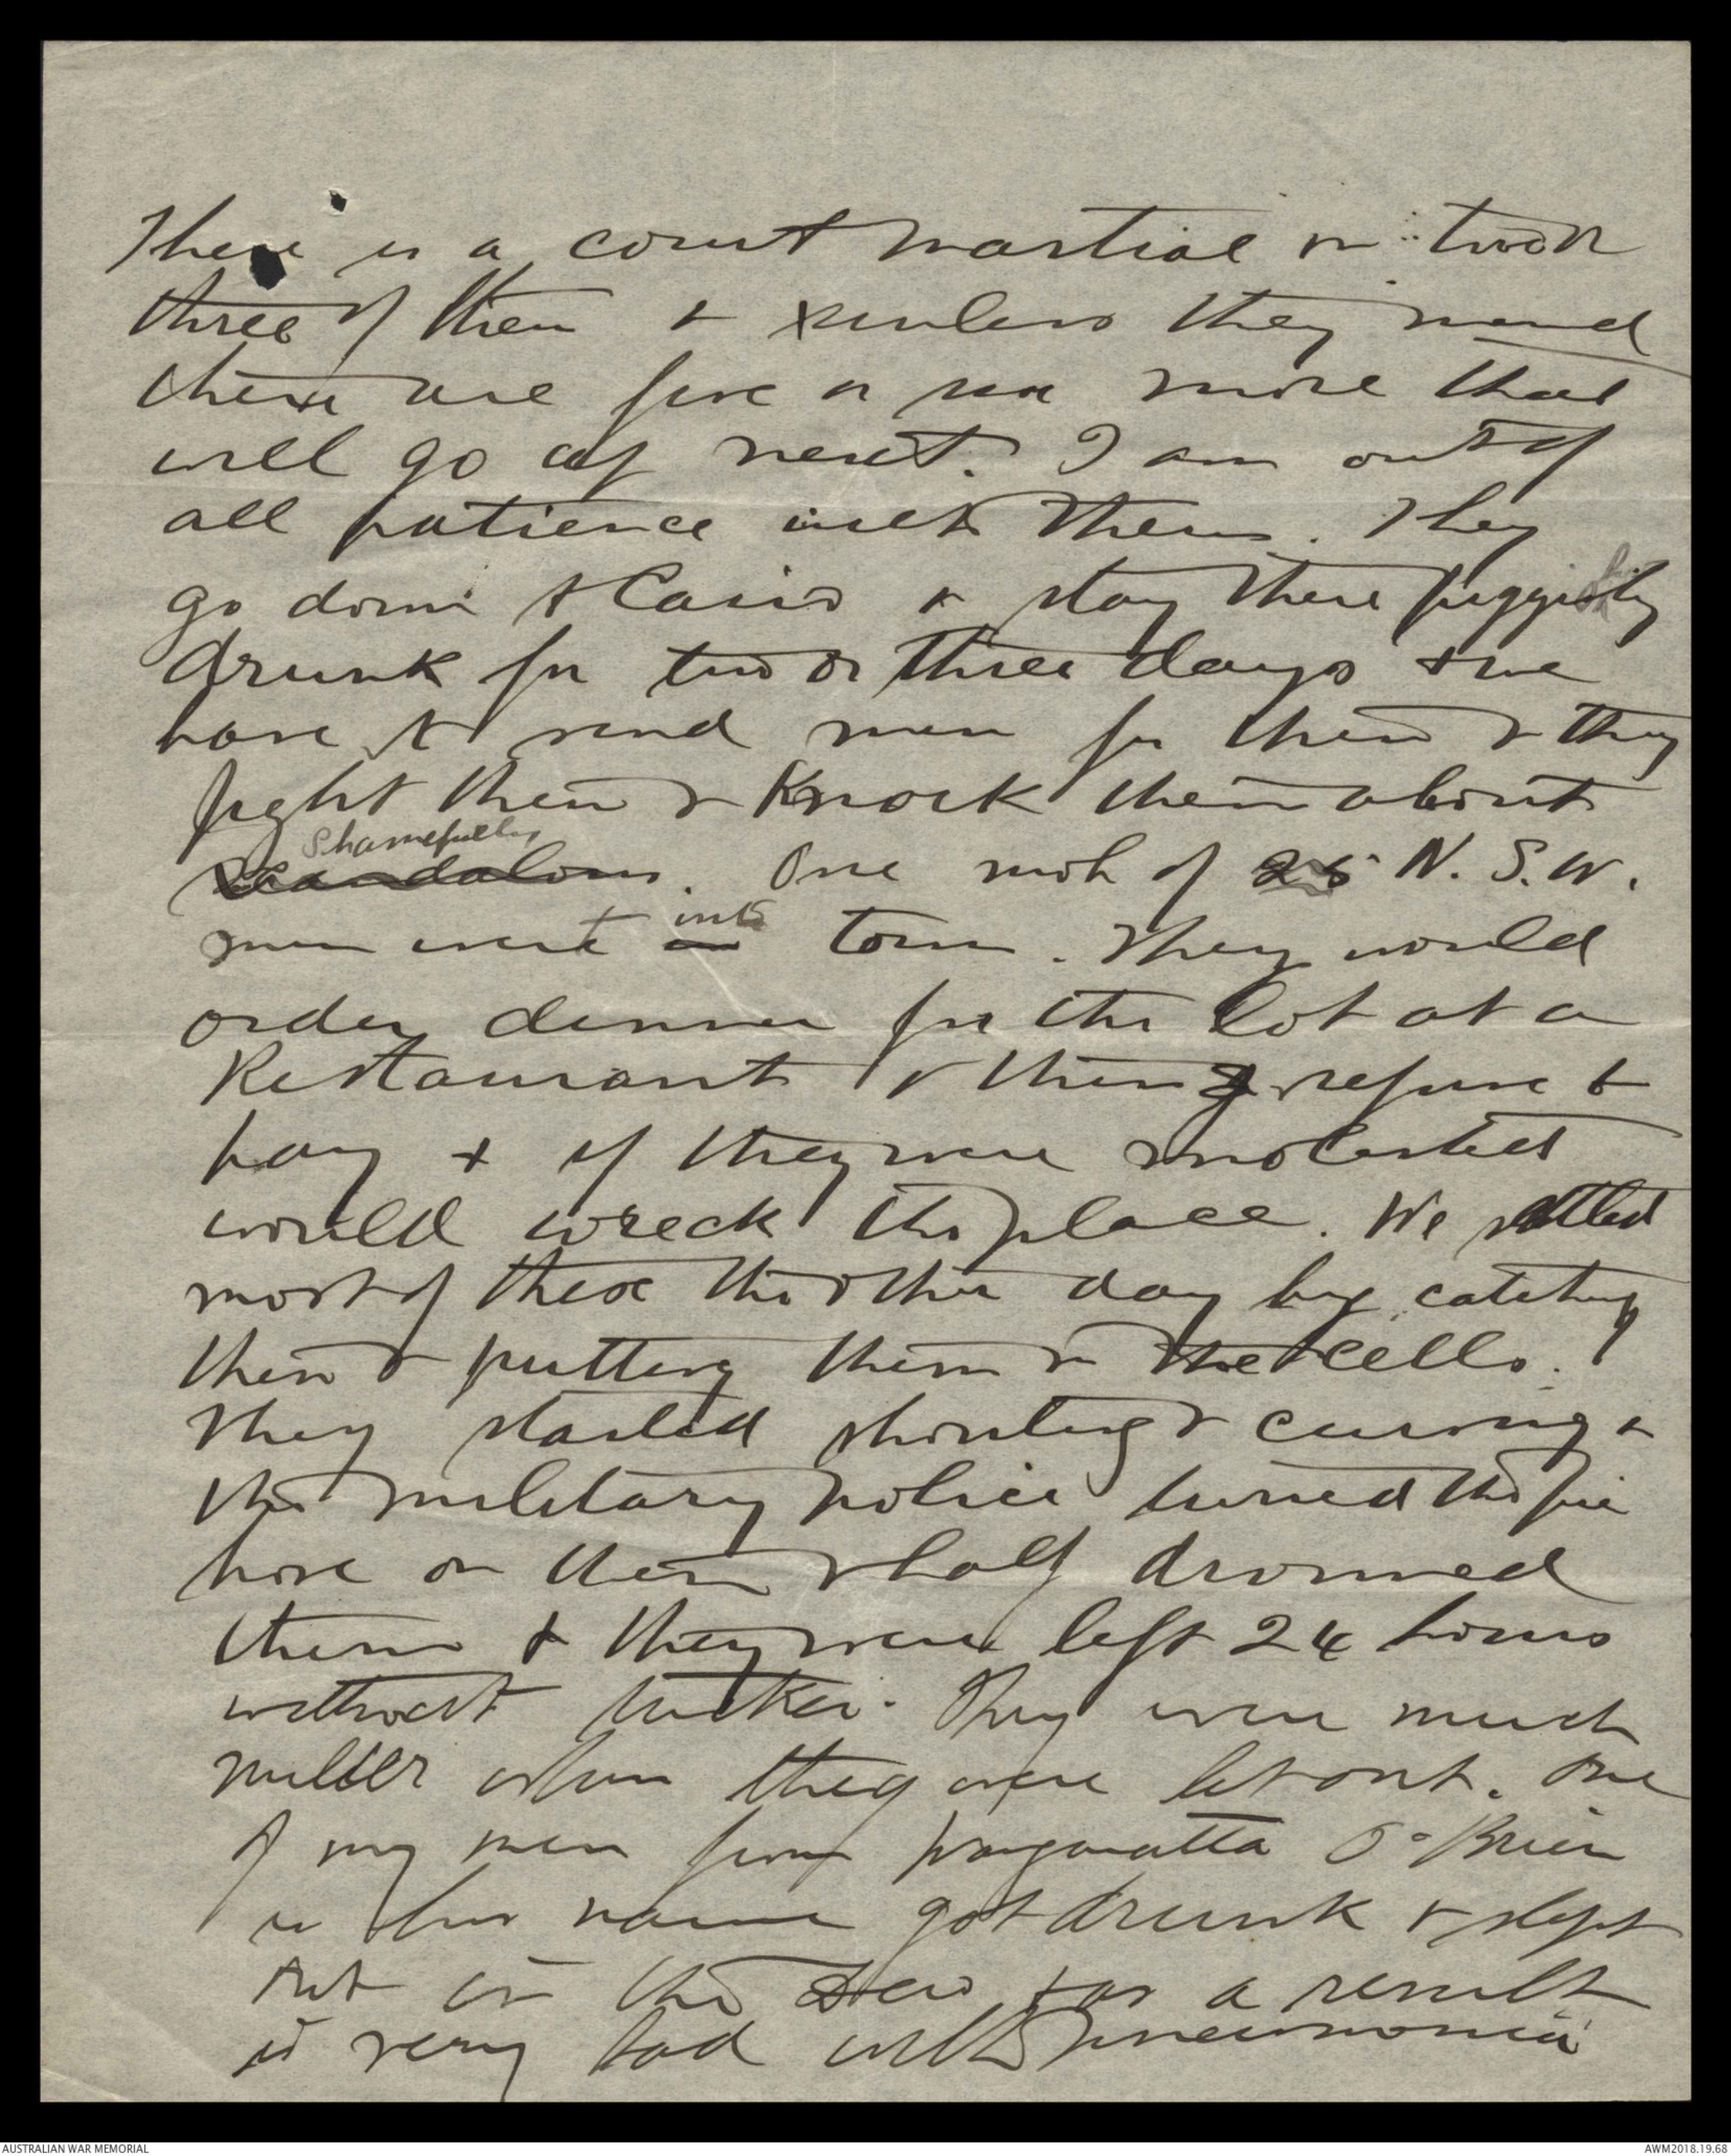 There is a court martial on two or
three of them & unless they mend
there are five or six more that
will go up next. I am out of
all patience with them. They
go down to Cairo & stay there piggishly
drunk for two or three days & we
have to send men for them & they
fight them & knock them about
shamefully
scandalous. One mob of 25 N.S.W.
into
men went in town. They would
order dinner for the lot at a
Restaurant & then refuse to
pay & if they were molested
would wreck the place. We settled
most of these the other day by catching
them & putting them in the cells.
They started shouting & cursing &
the military police turned the fire
hose on them & half drowned
them & they were left 24 hours
without tucker. They were much
milder when they were let out. One
of my men from Wangaratta O'Brien
is his name got drunk & slept
out in the dew & as a result
is very bad with pneumonia
AUSTRALIAN WAR MEMORIAL
AWM2018.19.68